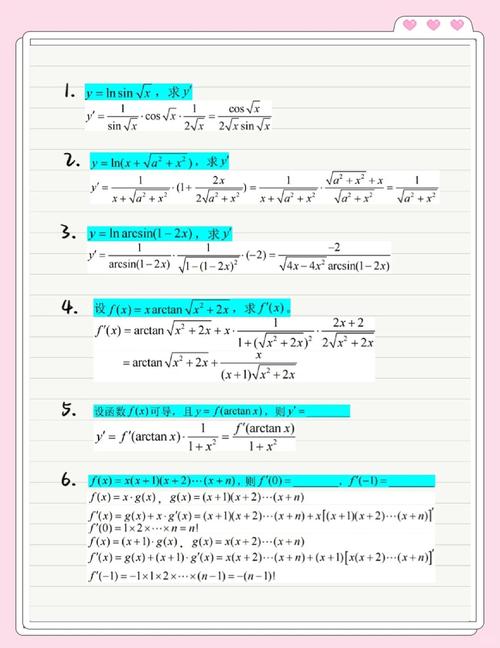 1. y = ln sin √x，求 y′
y′ = 1/(sin √x) · cos √x · 1/(2√x) = cos √x/(2√x sin √x)
2. y = ln(x + √(a² + x²))，求 y′
y′ = 1/(x + √(a² + x²)) · (1 + 2x/(2√(a² + x²))) = 1/(x + √(a² + x²)) · (√(a² + x²) + x)/√(a² + x²) = 1/√(a² + x²)
3. y = ln arcsin(1 − 2x)，求 y′
y′ = 1/arcsin(1 − 2x) · 1/√(1 − (1 − 2x)²) · (−2) = −2/(√(4x − 4x²) arcsin(1 − 2x))
4. 设 f(x) = x arctan √(x² + 2x)，求 f′(x)。
f′(x) = arctan √(x² + 2x) + x · 1/(1 + (√(x² + 2x))²) · (2x + 2)/(2√(x² + 2x))
= arctan √(x² + 2x) + x/((x + 1)√(x² + 2x))
5. 设函数 f(x) 可导，且 y = f(arctan x)，则 y′ = ________
y′ = f′(arctan x) · 1/(1 + x²) = f′(arctan x)/(1 + x²)
6. f(x) = x(x + 1)(x + 2)⋯(x + n)，则 f′(0) = ________，f′(−1) = ________
f(x) = x · g(x)，g(x) = (x + 1)(x + 2)⋯(x + n)
f′(x) = g(x) + x · g′(x) = (x + 1)(x + 2)⋯(x + n) + x[(x + 1)(x + 2)⋯(x + n)]′
f′(0) = 1 × 2 × ⋯ × n = n!
f(x) = (x + 1) · g(x)，g(x) = x(x + 2)⋯(x + n)
f′(x) = g(x) + (x + 1) · g′(x) = x(x + 2)⋯(x + n) + (x + 1)[x(x + 2)⋯(x + n)]′
f′(−1) = −1 × 1 × 2 × ⋯ × (n − 1) = −(n − 1)!